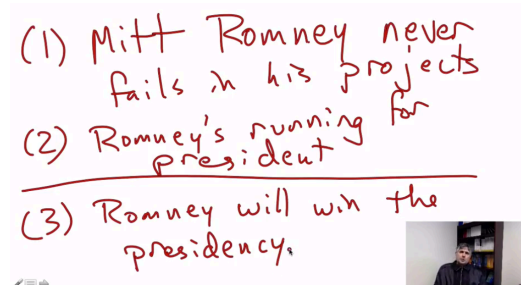 (1) Mitt Romney never
fails in his projects
(2) Romney's running for
president
(3) Romney will win the
presidency.